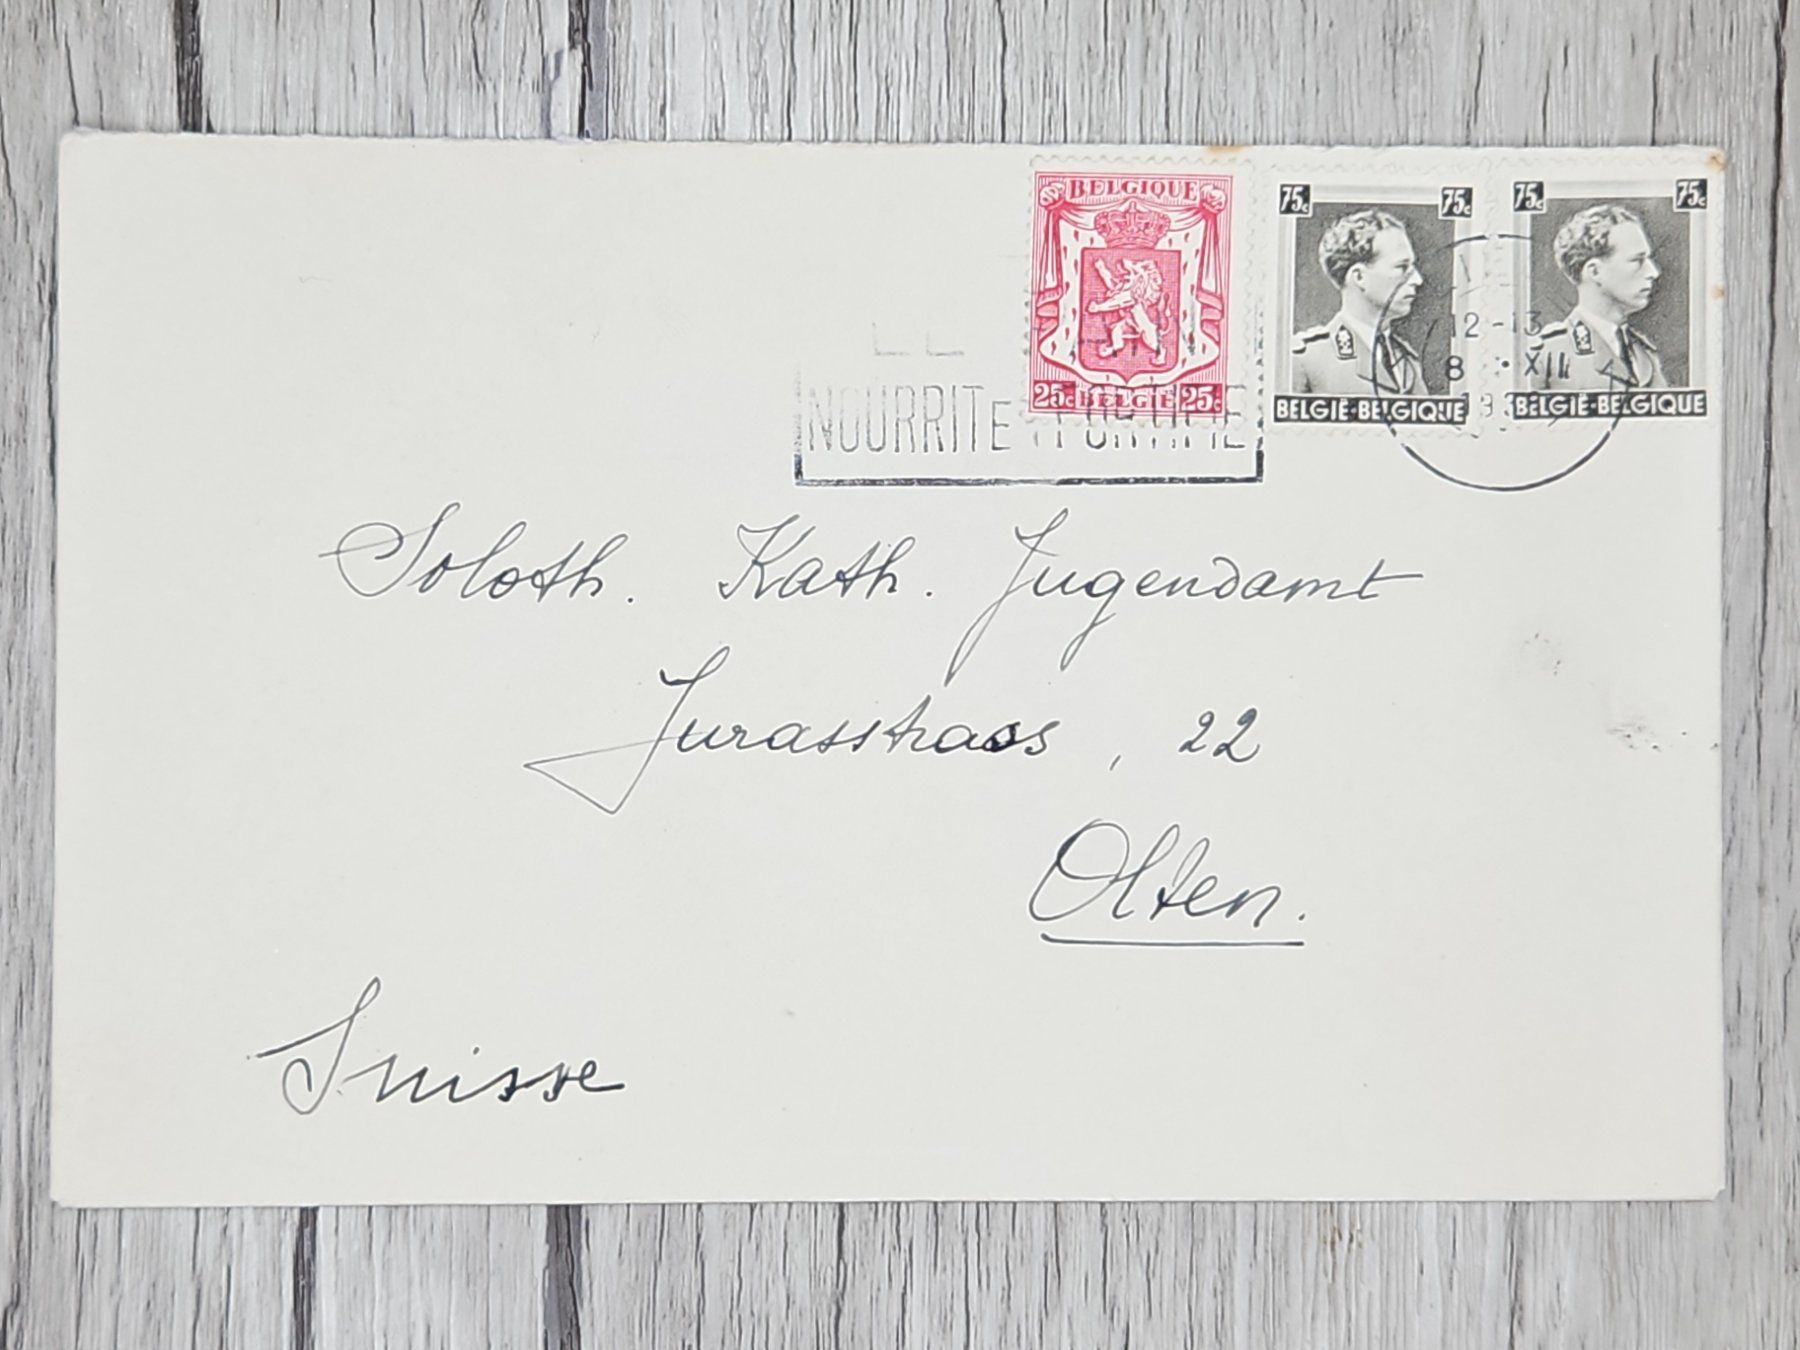 BELGIQUE
25c BELGIË 25c
75c 75c
BELGIË-BELGIQUE
75c 75c
BELGIË-BELGIQUE
12-13
8 XII
NOURRIT FORTIFIE
Soloth. Kath. Jugendamt
Jurasstraos, 22
Olten.
Suisse